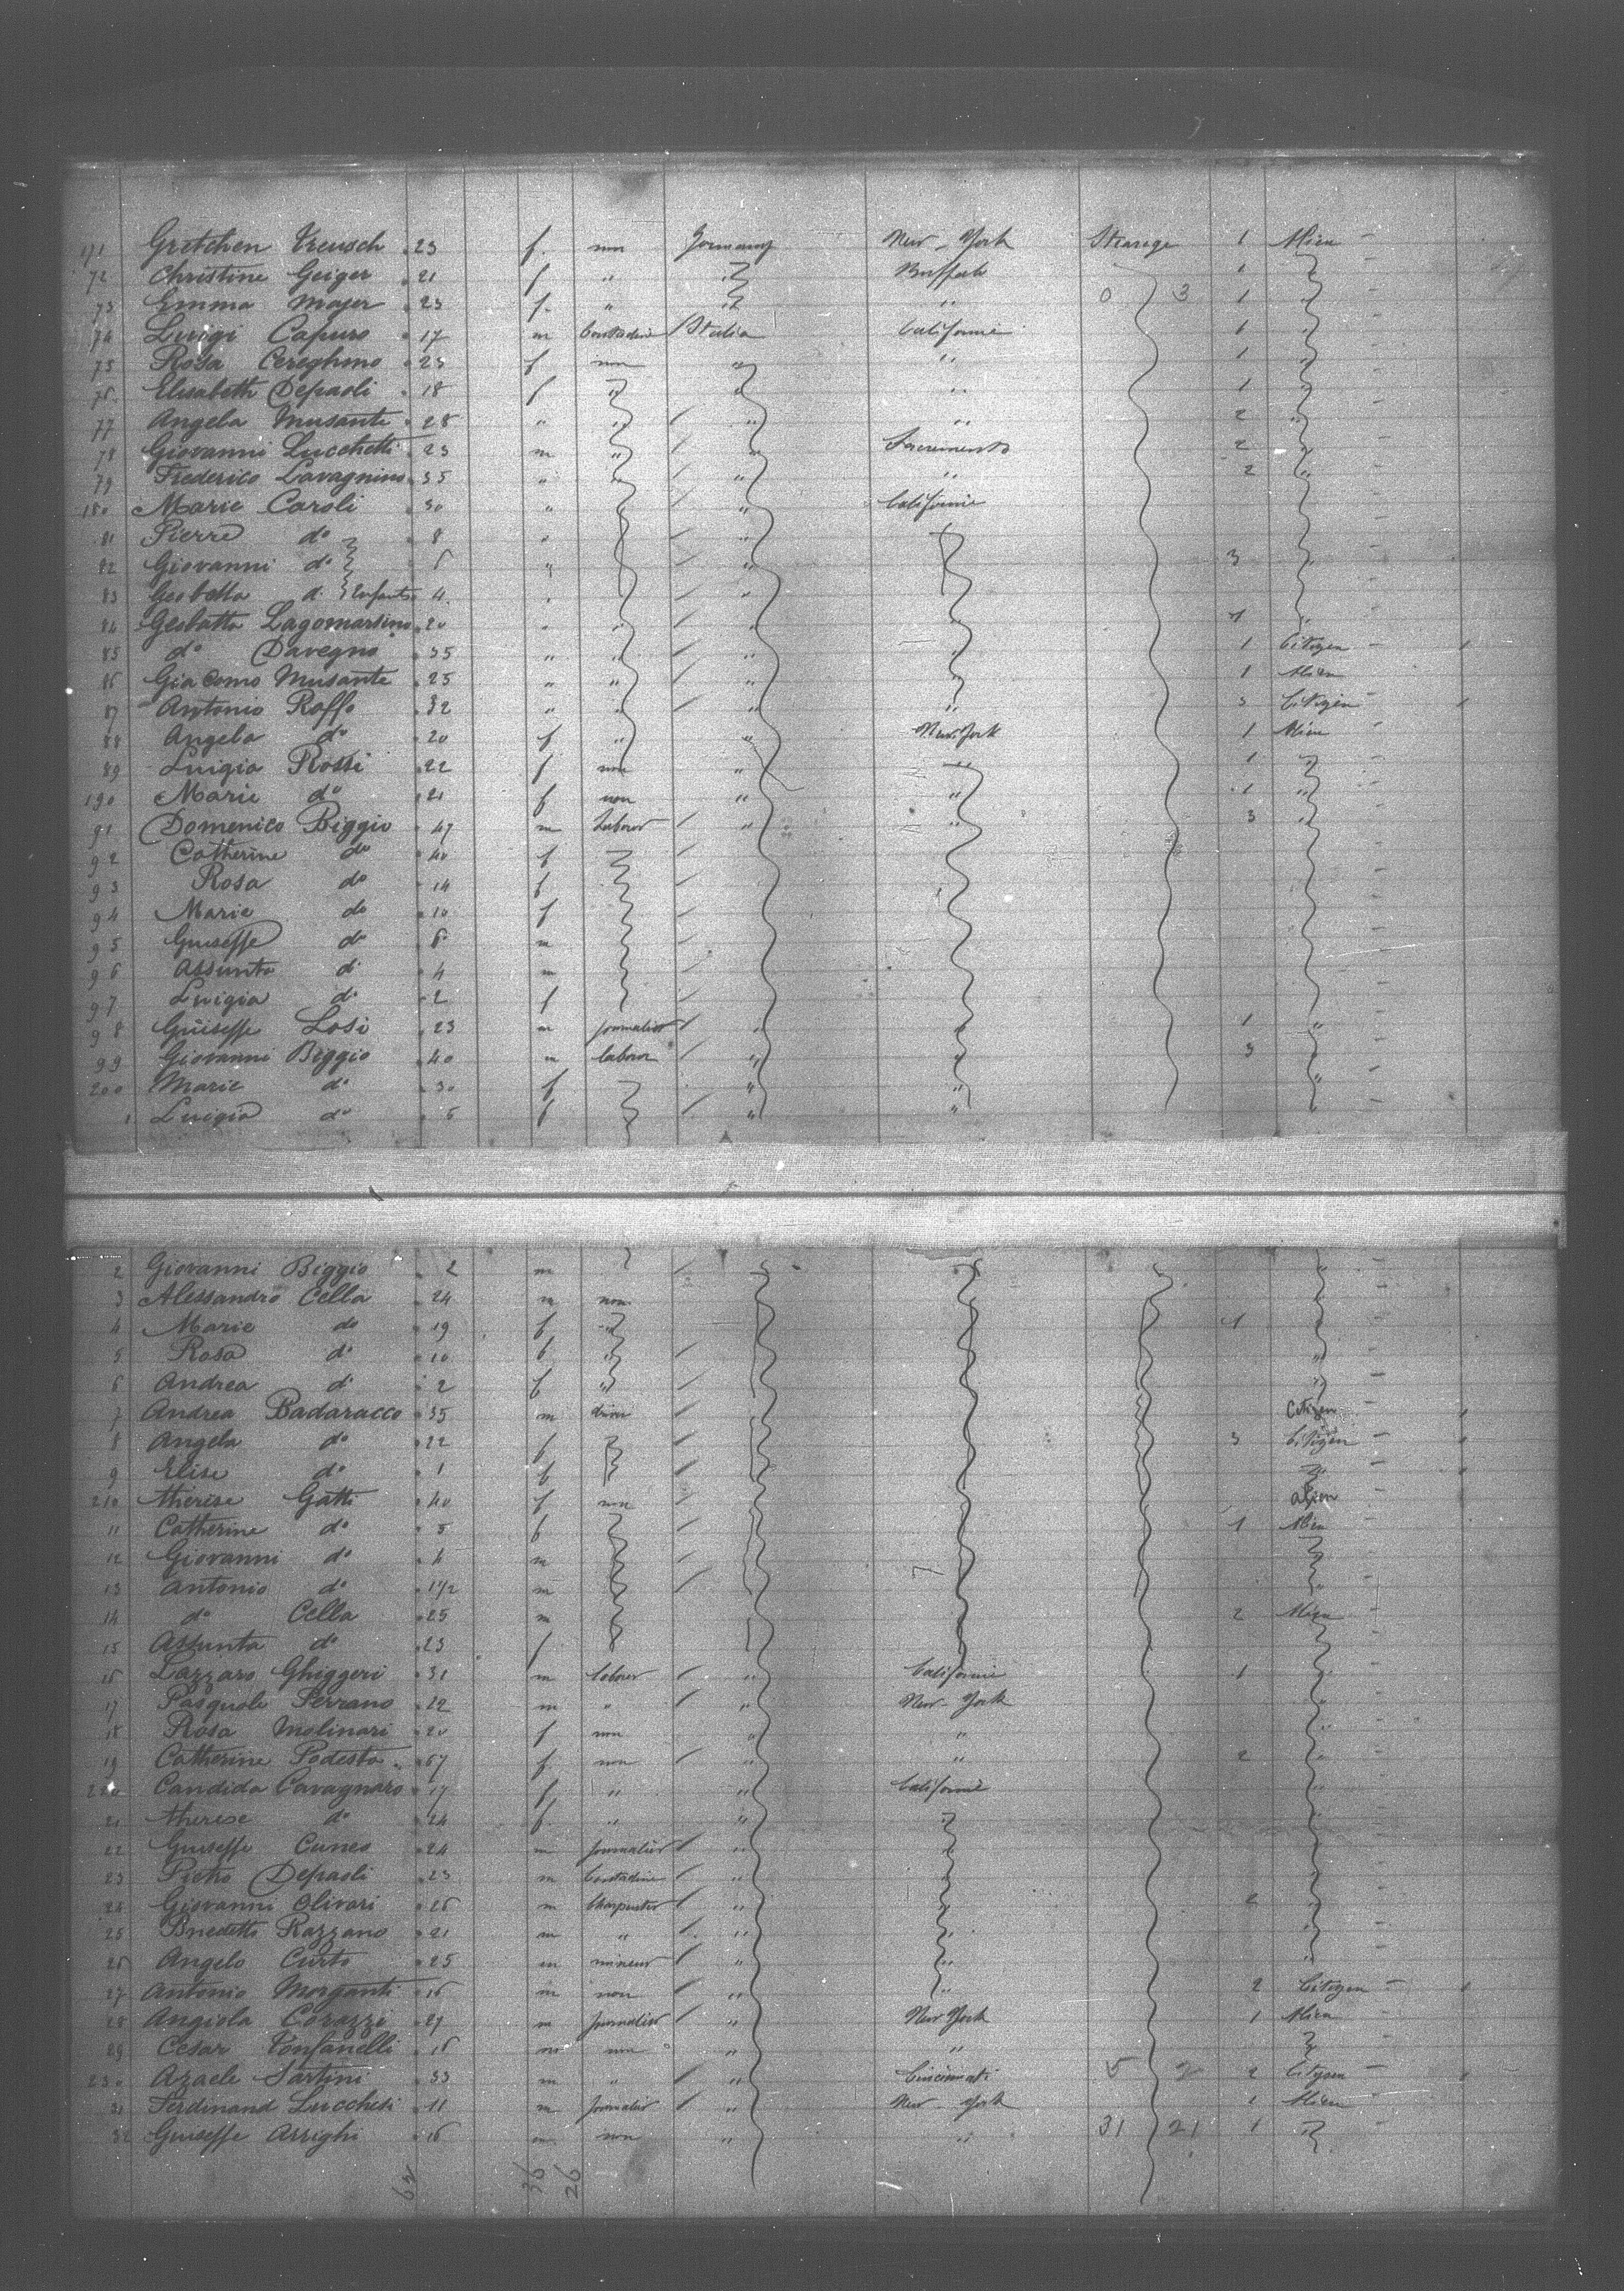 171 Gretchen Treusch 23 f. non Germany New-York Stearege 1 Alien -
72 Christine Geiger 21 f " " Buffalo 1 "
73 Emma Mayer 23 f. " " " 0 3 1 "
74 Luigi Capuro 17 m Contadin Italia Californie 1 "
75 Rosa Cereghino 23 f non " " 1 "
76 Elisabeth Depaoli 18 f " " " 1 "
77 Angela Musante 28 " " " " 2 "
78 Giovanni Lucchetti 23 m " " Sacremento 2 "
79 Frederico Lavagnino 35 " " " " 2 "
180 Marie Caroli 30 " " Californie
81 Pierre do 8 " "
82 Giovanni do " " 3 "
83 Gesbatta d. Enfants 4 " "
84 Gesbatta Lagomarsino 20 " " " " "
85 do Davegno 35 " " " " 1 Citizen -
86 Giacomo Musante 25 " " " " 1 Alien
87 Antonio Roffo 32 " " " " 3 Citizen -
88 Angela do 20 f " " New-York 1 Alien -
89 Luigia Rossi 22 f non " " 1 "
190 Marie do 21 f non " " 1 "
91 Domenico Biggio 47 m Labover " " 3 "
92 Catherine do 40 f
93 Rosa do 14 f
94 Marie do 10 f
95 Guiseffe do 8 m
96 Assunta d. 4 m
97 Luigia d. 2 f
98 Guiseffe Losi 23 m journalier " " 1 "
99 Giovanni Biggio 40 m labover " " 3
200 Marie d. 30 f " " "
1 Luigia do 5 f " " "
2 Giovanni Biggio 2 m "
3 Alessandro Cella 24 m non
4 Marie do 19 f " 1
5 Rosa do 10 f " "
6 Andrea d. 2 f " "
7 Andrea Badaracco 35 m Citizen
8 Angela do 22 f 3 Citizen -
9 Elise do 1 f "
210 Therese Gatti 40 f non alien
11 Catherine do 5 f 1 Alien
12 Giovanni do 4 m
13 Antonio do 1 1/2 m "
14 do Cella 25 m 2 Alien -
15 Assunta do 23 f
16 Lazzaro Ghiggeri 31 m labover " Californie 1 "
17 Pasquale Ferrano 22 m " " New-York "
18 Rosa Molinari 20 f non " " "
19 Catherine Podesta 67 f non " " 2 "
220 Candida Cavagnaro 17 f " " Californie "
21 Therese do 24 f. " " "
22 Guiseffe Cuneo 24 m journalier "
23 Pietro Depaoli 23 m Contadine "
24 Giovanni Olivari 26 m Charpentier " " 2
25 Bnedetti Razzano 21 m " " " "
26 Angelo Curto 25 m mineur " " "
27 Antonio Morganti 16 m non " " 2 Citizen -
28 Angiola Corazzi 27 m journalier " New York 1 Alien
29 Cesar Tonfanelli 16 m non " "
230 Azaele Sartini 33 m " " Cincinnati 5 2 2 Citizen -
31 Ferdinand Lucchesi 11 m journalier " New-York 1 Alien
32 Guiseffe Arrighi 16 m non " " 31 21 1 "
62 36 26